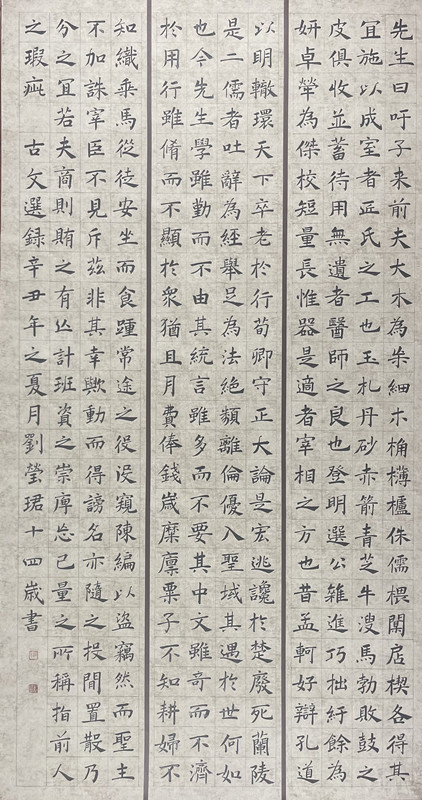 先生曰吁子来前夫大木為杗細木桷欂櫨侏儒椳闑扂楔各得其
宜施以成室者匠氏之工也玉札丹砂赤箭青芝牛溲馬勃敗鼓之
皮俱收並蓄待用無遺者醫師之良也登明選公雜進巧拙紆餘為
妍卓犖為傑校短量長惟器是適者宰相之方也昔孟軻好辯孔道
以明轍環天下卒老於行荀卿守正大論是宏逃讒於楚廢死蘭陵
是二儒者吐辭為經舉足為法絕類離倫優入聖域其遇於世何如
也今先生學雖勤而不由其統言雖多而不要其中文雖奇而不濟
於用行雖脩而不顯於衆猶且月費俸錢歲糜廩粟子不知耕婦不
知織乘馬從徒安坐而食踵常途之役役窺陳編以盜竊然而聖主
不加誅宰臣不見斥茲非其幸歟動而得謗名亦隨之投閒置散乃
分之宜若夫商財賄之有亾計班資之崇庳忘己量之所稱指前人
之瑕疵 古文選録辛丑年之夏月劉瑩珺十四歲書